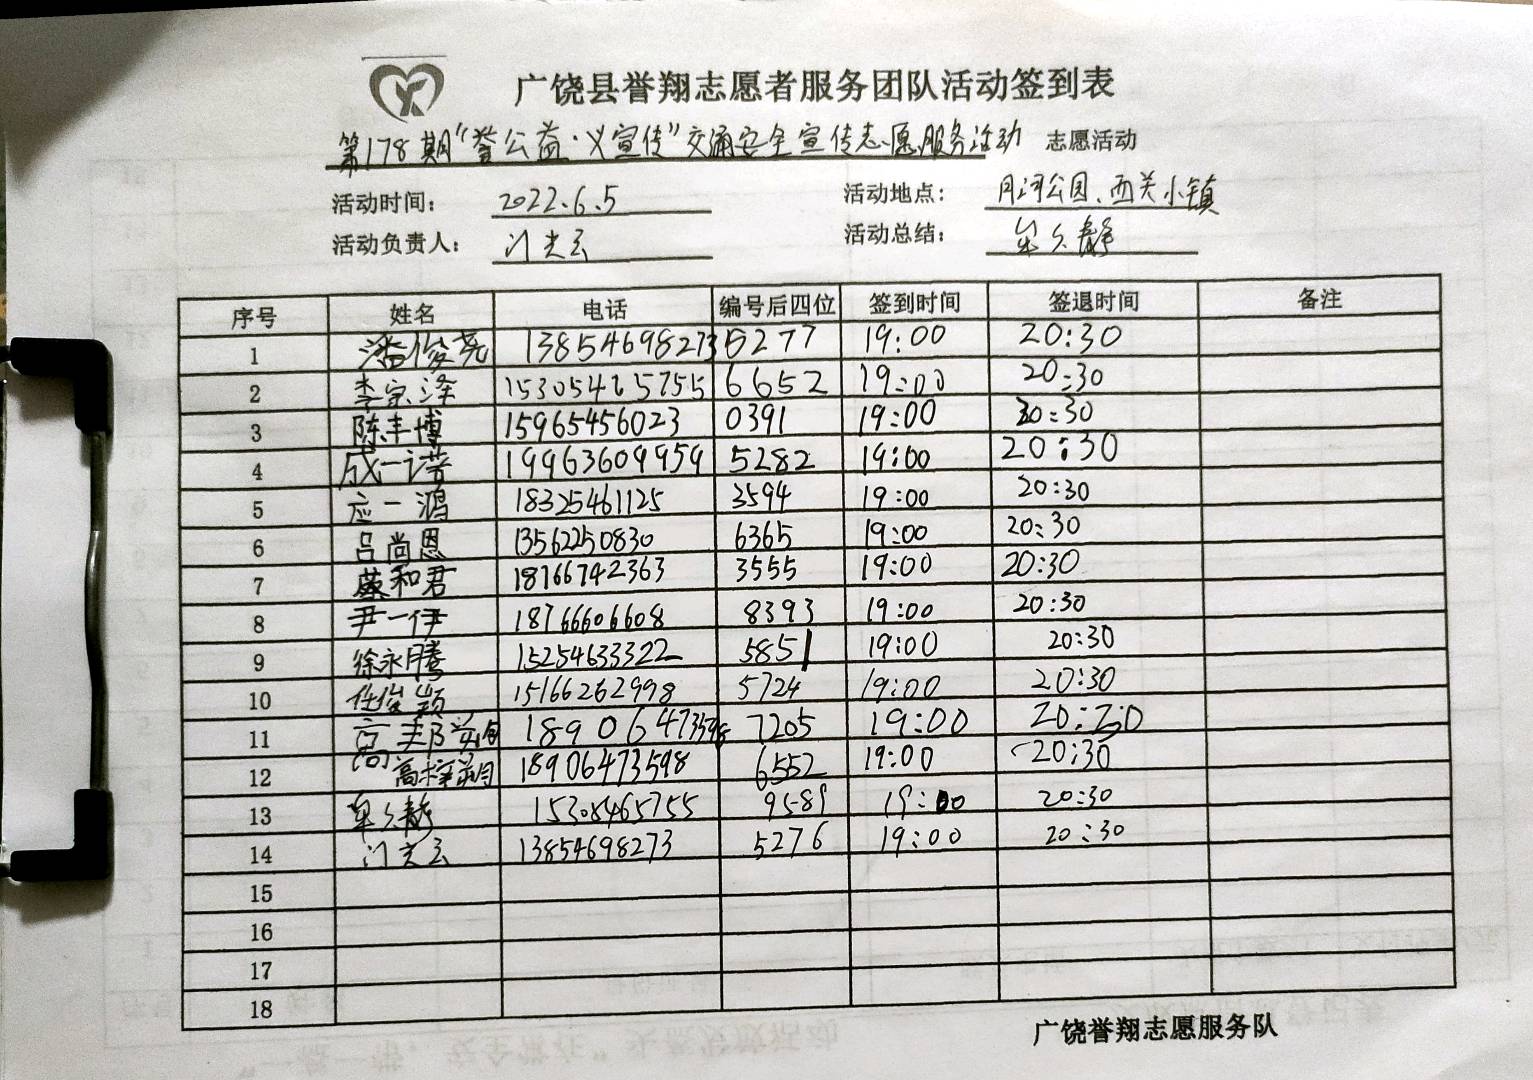 广饶县誉翔志愿者服务团队活动签到表
第178期"誉公益·义宣传"交通安全宣传志愿服务活动 志愿活动
活动时间: 2022.6.5 活动地点: 月河公园、西关小镇
活动负责人: 门光云 活动总结: 牟久静
序号 姓名 电话 编号后四位 签到时间 签退时间 备注
1 潘俊尧 13854698273 5277 19:00 20:30
2 李宗泽 15305465755 6652 19:00 20:30
3 陈丰博 15965456023 0391 19:00 20:30
4 成一诺 19963609959 5282 19:00 20:30
5 应一鸿 18325461125 3594 19:00 20:30
6 吕尚恩 13562250830 6365 19:00 20:30
7 蔡和君 18766742363 3555 19:00 20:30
8 尹一伊 18766606608 8393 19:00 20:30
9 徐永腾 15254633322 5851 19:00 20:30
10 任俊颖 15166262998 5724 19:00 20:30
11 18906473598 7205 19:00 20:30
12 高 18906473598 6552 19:00 20:30
13 牟久静 15305465755 9589 19:00 20:30
14 门光云 13854698273 5276 19:00 20:30
15
16
17
18
广饶誉翔志愿服务队